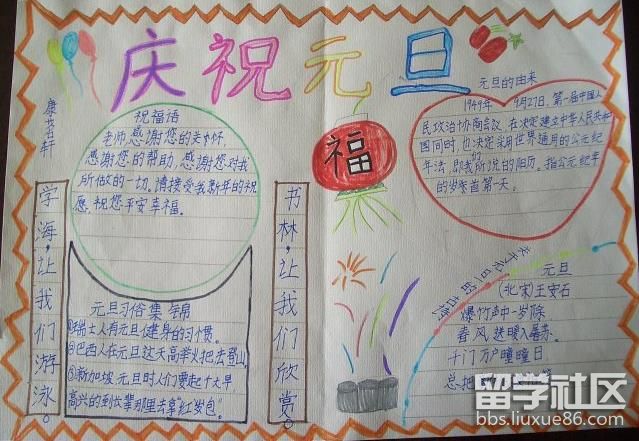 庆祝元旦
康茗轩
祝福语
老师,感谢您的关怀,
感谢您的帮助,感谢您对我
所做的一切。请接受我新年的祝
愿,祝您平安幸福。
福
元旦的由来
1949年 9月27日,第一届中国人
民政治协商会议,在决定建立中华人民共和
国同时,也决定采用世界通用的公元纪
年法,即我们所说的阳历。指公元纪年
的岁首第一天。
学海,让我们游泳。
元旦习俗集锦
①瑞士人有元旦健身的习惯。
②巴西人在元旦这天高举火把,去登山
③新加坡元旦时人们要起个大早
高兴的到长辈那里去拿"红岁包"。
书林,让我们欣赏。
关于元旦的古诗
元旦
(北宋)王安石
爆竹声中一岁除
春风送暖入屠苏。
千门万户曈曈日,
总把
留学社区
bbs.liuxue86.com